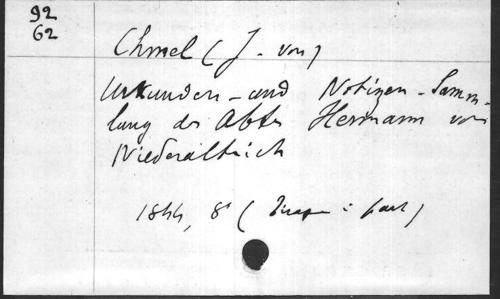 92
62
Chmel (J. von)
Urkunden - und Notizen - Samm-
lung des Abtes Hermann von
Niederaltaich
1844, 8° (Tirage à part)